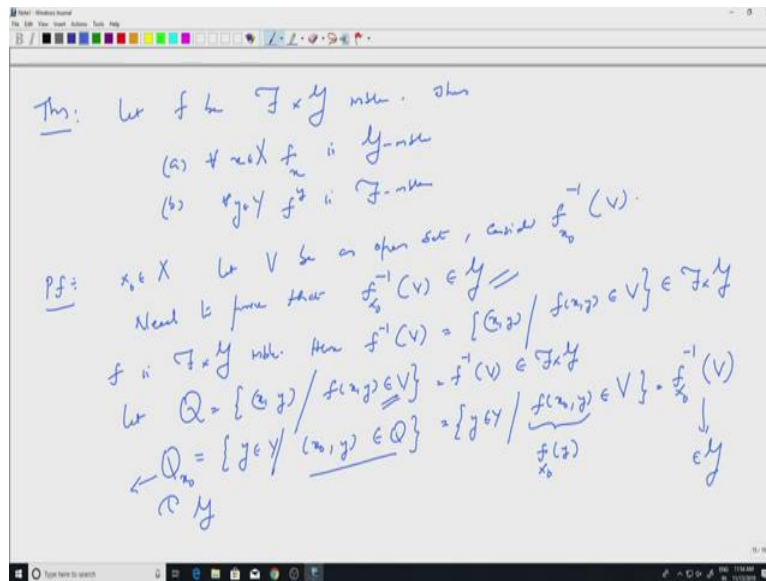 Note1 - Windows Journal
File Edit View Insert Actions Tools Help
Thm: Let f be F × G mble. Then
(a) ∀ x∈X f_x is G-mble
(b) ∀ y∈Y f^y is F-mble
Pf: x₀ ∈ X Let V be an open set, consider f_{x₀}^{-1}(V).
Need to prove that f_{x₀}^{-1}(V) ∈ G
f is F×G mble. Hence f^{-1}(V) = {(x,y) / f(x,y) ∈ V} ∈ F×G
Let Q = {(x,y) / f(x,y) ∈ V} = f^{-1}(V) ∈ F×G
Q_{x₀} = {y∈Y / (x₀,y) ∈ Q} = {y∈Y / f(x₀,y) ∈ V} = f_{x₀}^{-1}(V)
f_{x₀}(y)
∈ G
∈ G
Type here to search